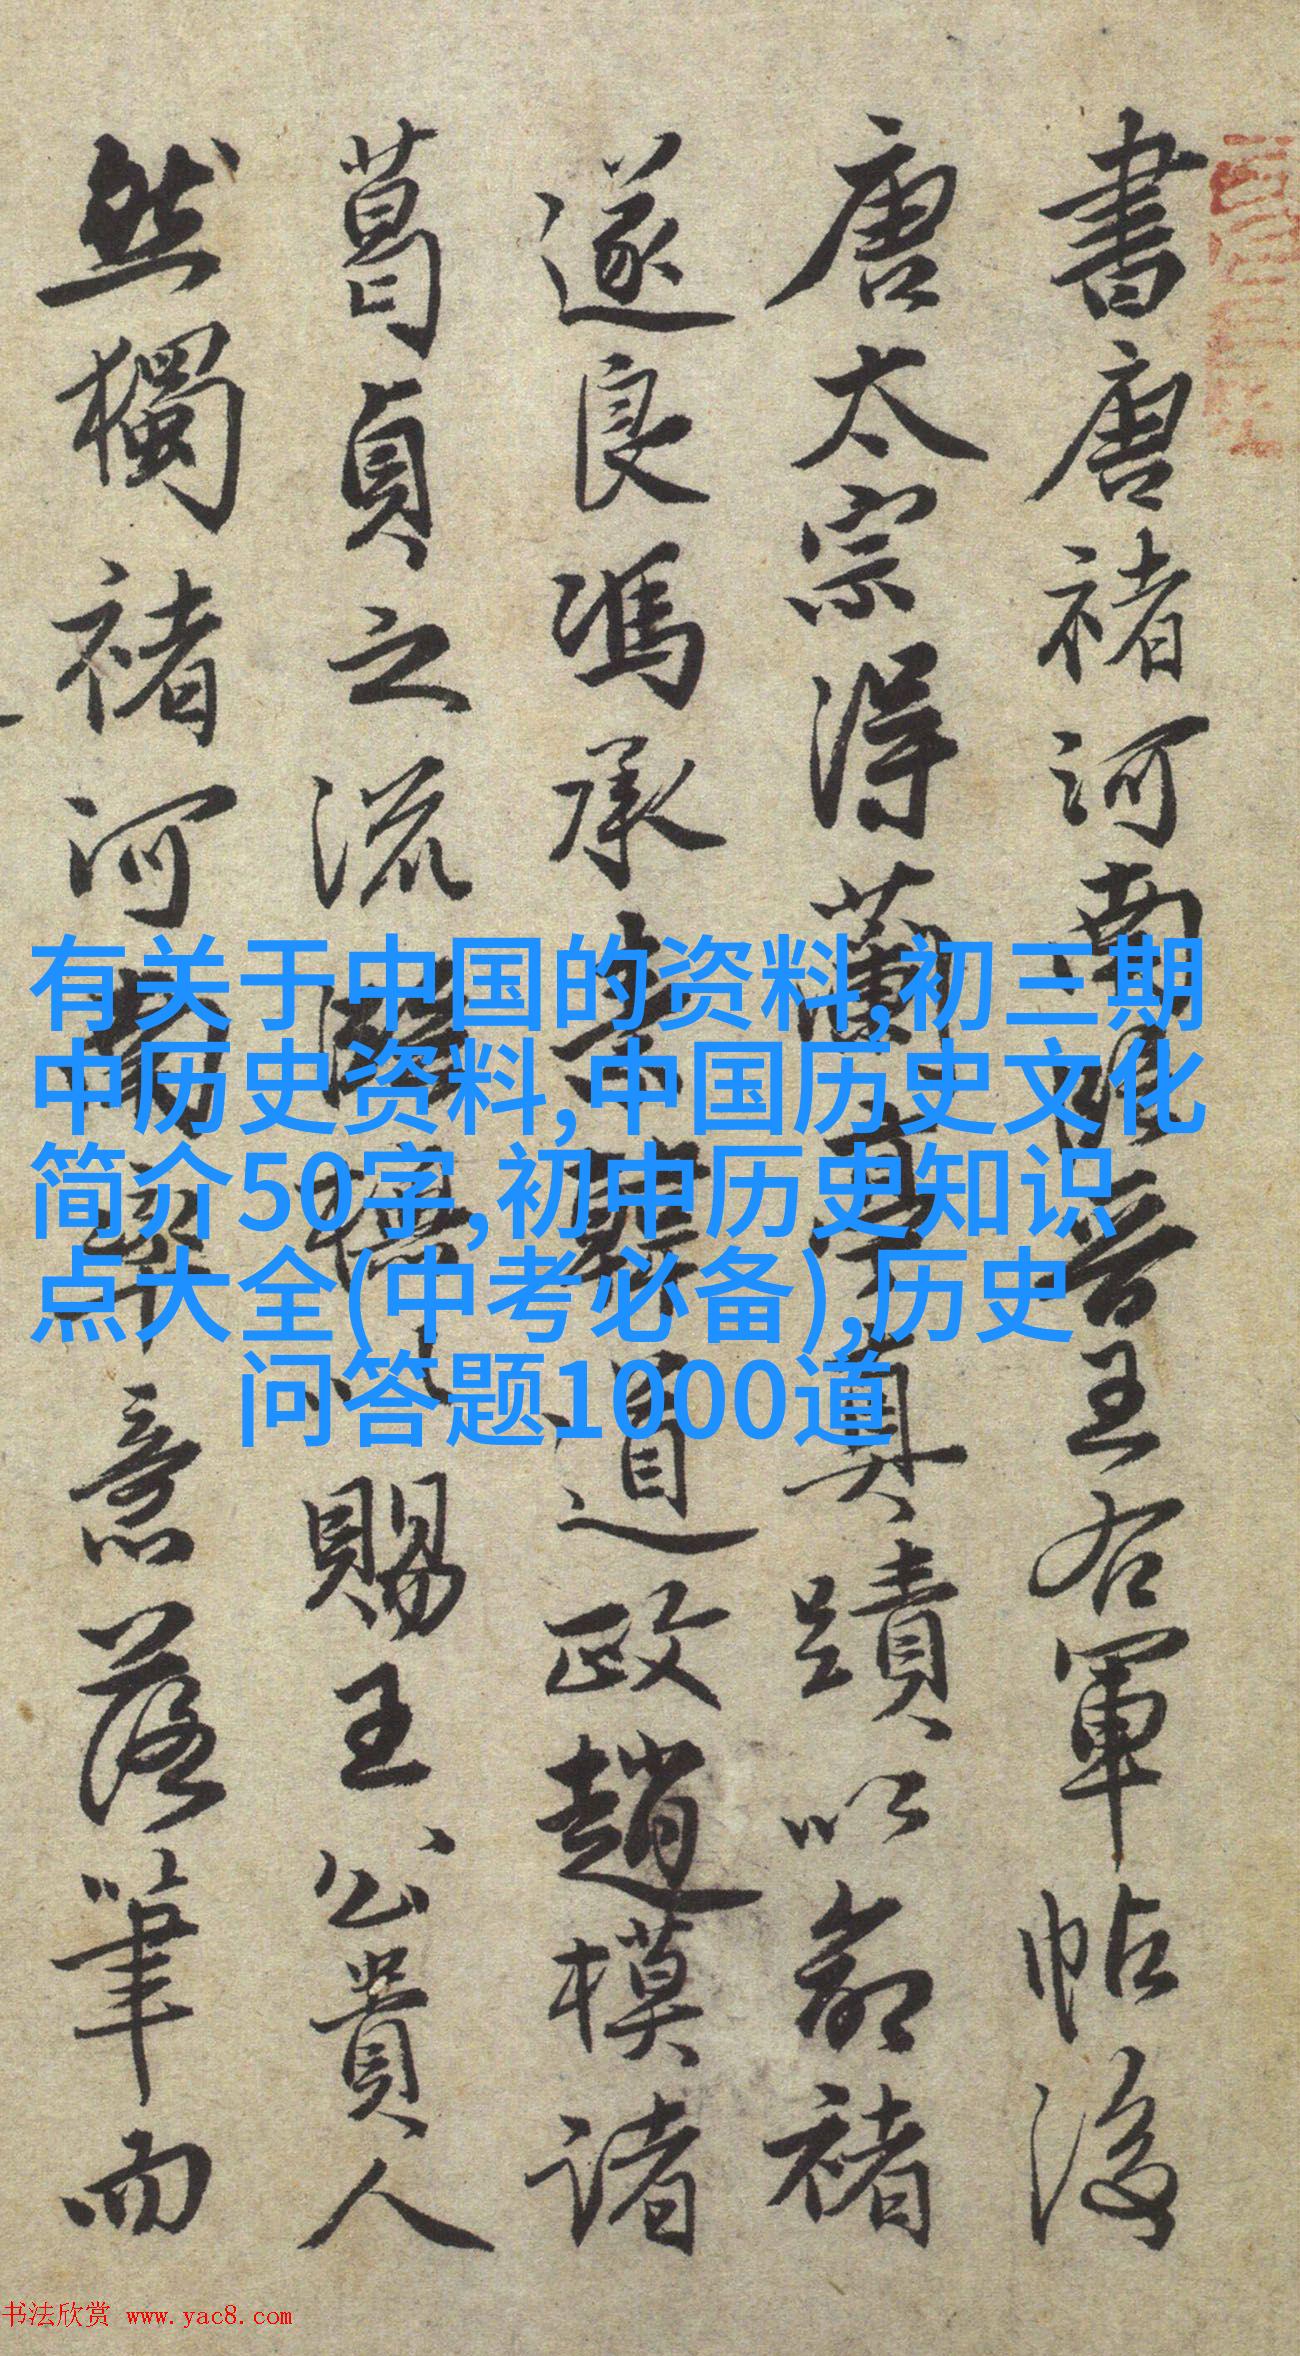 書唐褚河南臨晉王右軍帖後
唐太宗得蘭亭真蹟以命褚
遂良馮承素韓道政趙模諸
葛貞之流賜王公貴人
然獨褚河南率意落筆而
有关于中国的资料,初三期
中历史资料,中国历史文化
简介50字,初中历史知识
点大全(中考必备),历史
问答题1000道
书法欣赏 www.yac8.com